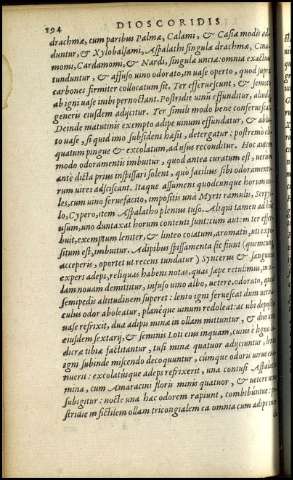 194 DIOSCORIDIS
drachmæ, cum paribus Palmæ, Calami, & Casiæ modis ad
duntur, & Xylobalsami, Aspalathi singula drachmæ, Cina
momi, Cardamomi, & Nardi, singulæ unciæ: omnia exactius
tunduntur, & affuso uino odorato, in uase operto, quod supra
carbones firmiter collocatum sit. Ter efferuescunt, &
ab igni uase inibi pernoctant. Postridie uinū effunditur,
generis eiusdem adijcitur. Ter simili modo bene
Deinde matutinis exempto adipe uinum effunditur, &
to uase, si quid imo subsidens hæsit, detergatur: postremo
quatum pingue & excolatum, ad usus reconditur. Hoc autem
modo odoramentis imbutur, quod antea curatum est,
ante dicta prius inspissari solent, quo facilius sibi odoramento
rum uires adsciscant. Itaque assumens quodcunque horum
les, cum uino feruefacito, impositis una Myrti ramulis, Serpil
lo, Cypero, item Aspalatho plenius tuso. Aliqui tamen ad hunc
usum, uno duntaxat horum contenti sunt: cum autem ter efferbuit,
exemptum leniter, & linteo coatum, aromatis,
situm est, imbutur. Adipibus spissamenta sic fiunt
acceperis, oportet ut recens tundatur) Syncerus & sanguinis
expers adeps, reliquas habens notas, quas sæpe retulimus,
lam nouam demittitur, infuso uino albo, uetere, odorato,
semipedis altitudinem superet: lento igni feruescat dum
culus odor aboleatur, planéque uinum redoleat:
uase refrixit, duæ adipis minæ in ollam mittuntur, &
eiusdem sextarij, & seminis Loti eius inquam, cuius è ligno
dicræ tibiæ factitantur, tusi minæ quatuor adijciuntur,
igni subinde miscendo decoquuntur, cúmque odorē
nuerit: excolatisque adeps refrixerit, una contusi Aspalathi
mina, cum Amaracini floris minis quatuor, &
subigitur: nocte una hac odorem rapiunt, combibuntque:
stridie in fictilem ollam tricongialem ea omnia cum